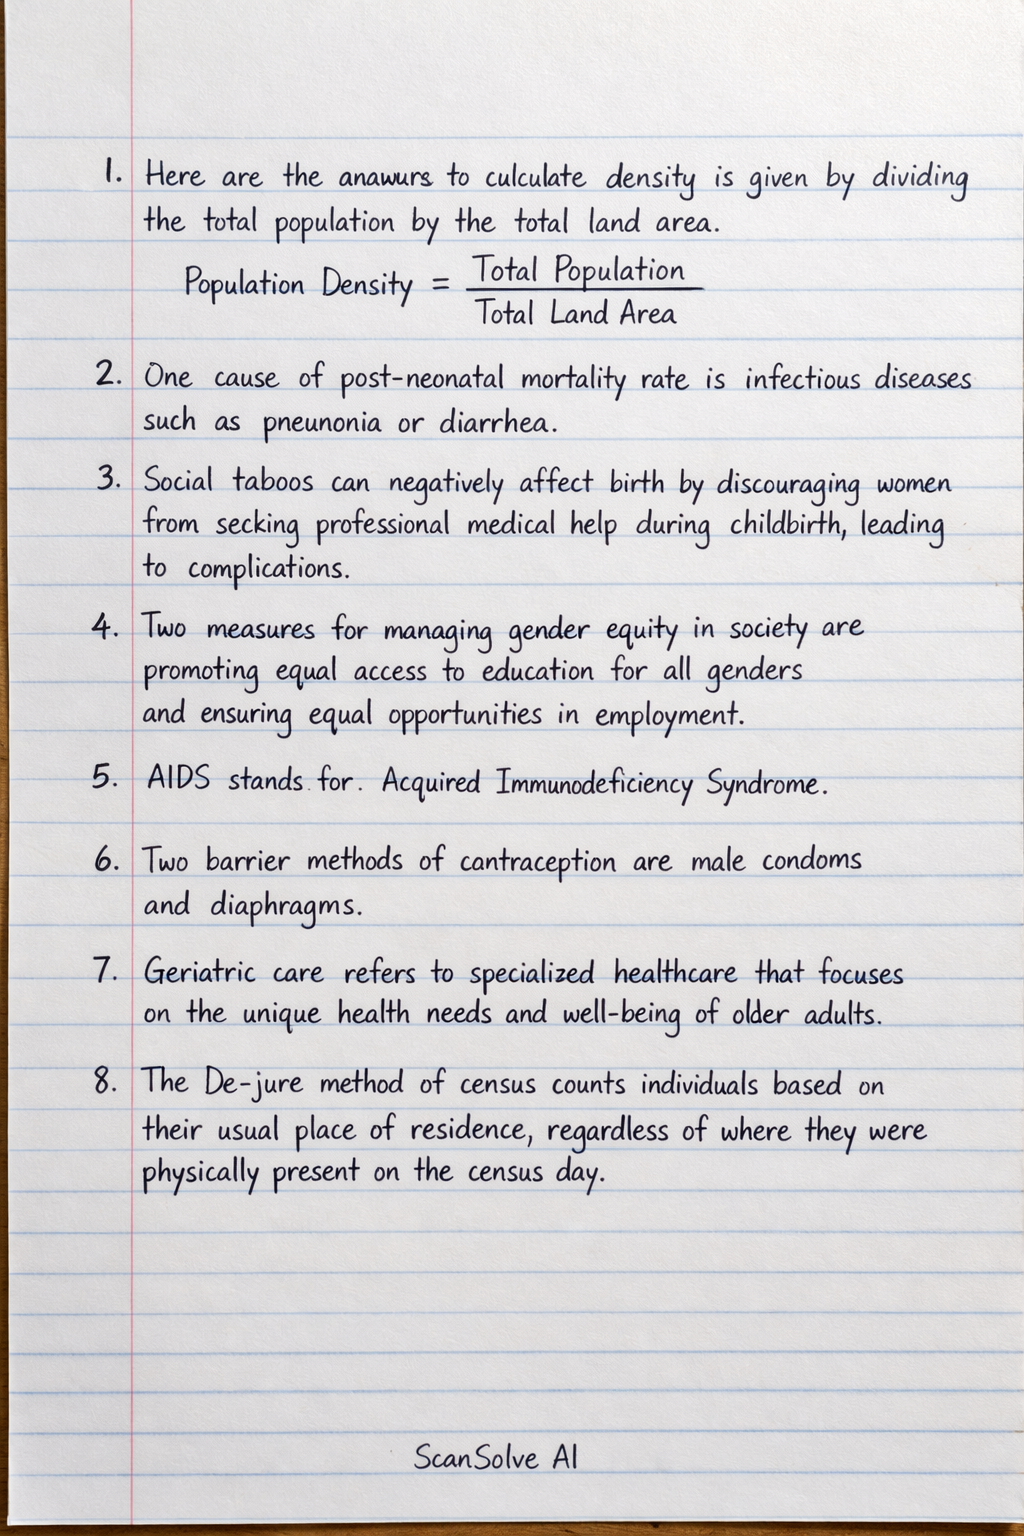 1. Here are the anawurs to culculate density is given by dividing
the total population by the total land area.
Population Density = Total Population
Total Land Area
2. One cause of post-neonatal mortality rate is infectious diseases
such as pneunonia or diarrhea.
3. Social taboos can negatively affect birth by discouraging women
from secking professional medical help during childbirth, leading
to complications.
4. Two measures for managing gender equity in society are
promoting equal access to education for all genders
and ensuring equal opportunities in employment.
5. AIDS stands for. Acquired Immunodeficiency Syndrome.
6. Two barrier methods of cantraception are male condoms
and diaphragms.
7. Geriatric care refers to specialized healthcare that focuses
on the unique health needs and well-being of older adults.
8. The De-jure method of census counts individuals based on
their usual place of residence, regardless of where they were
physically present on the census day.
ScanSolve AI